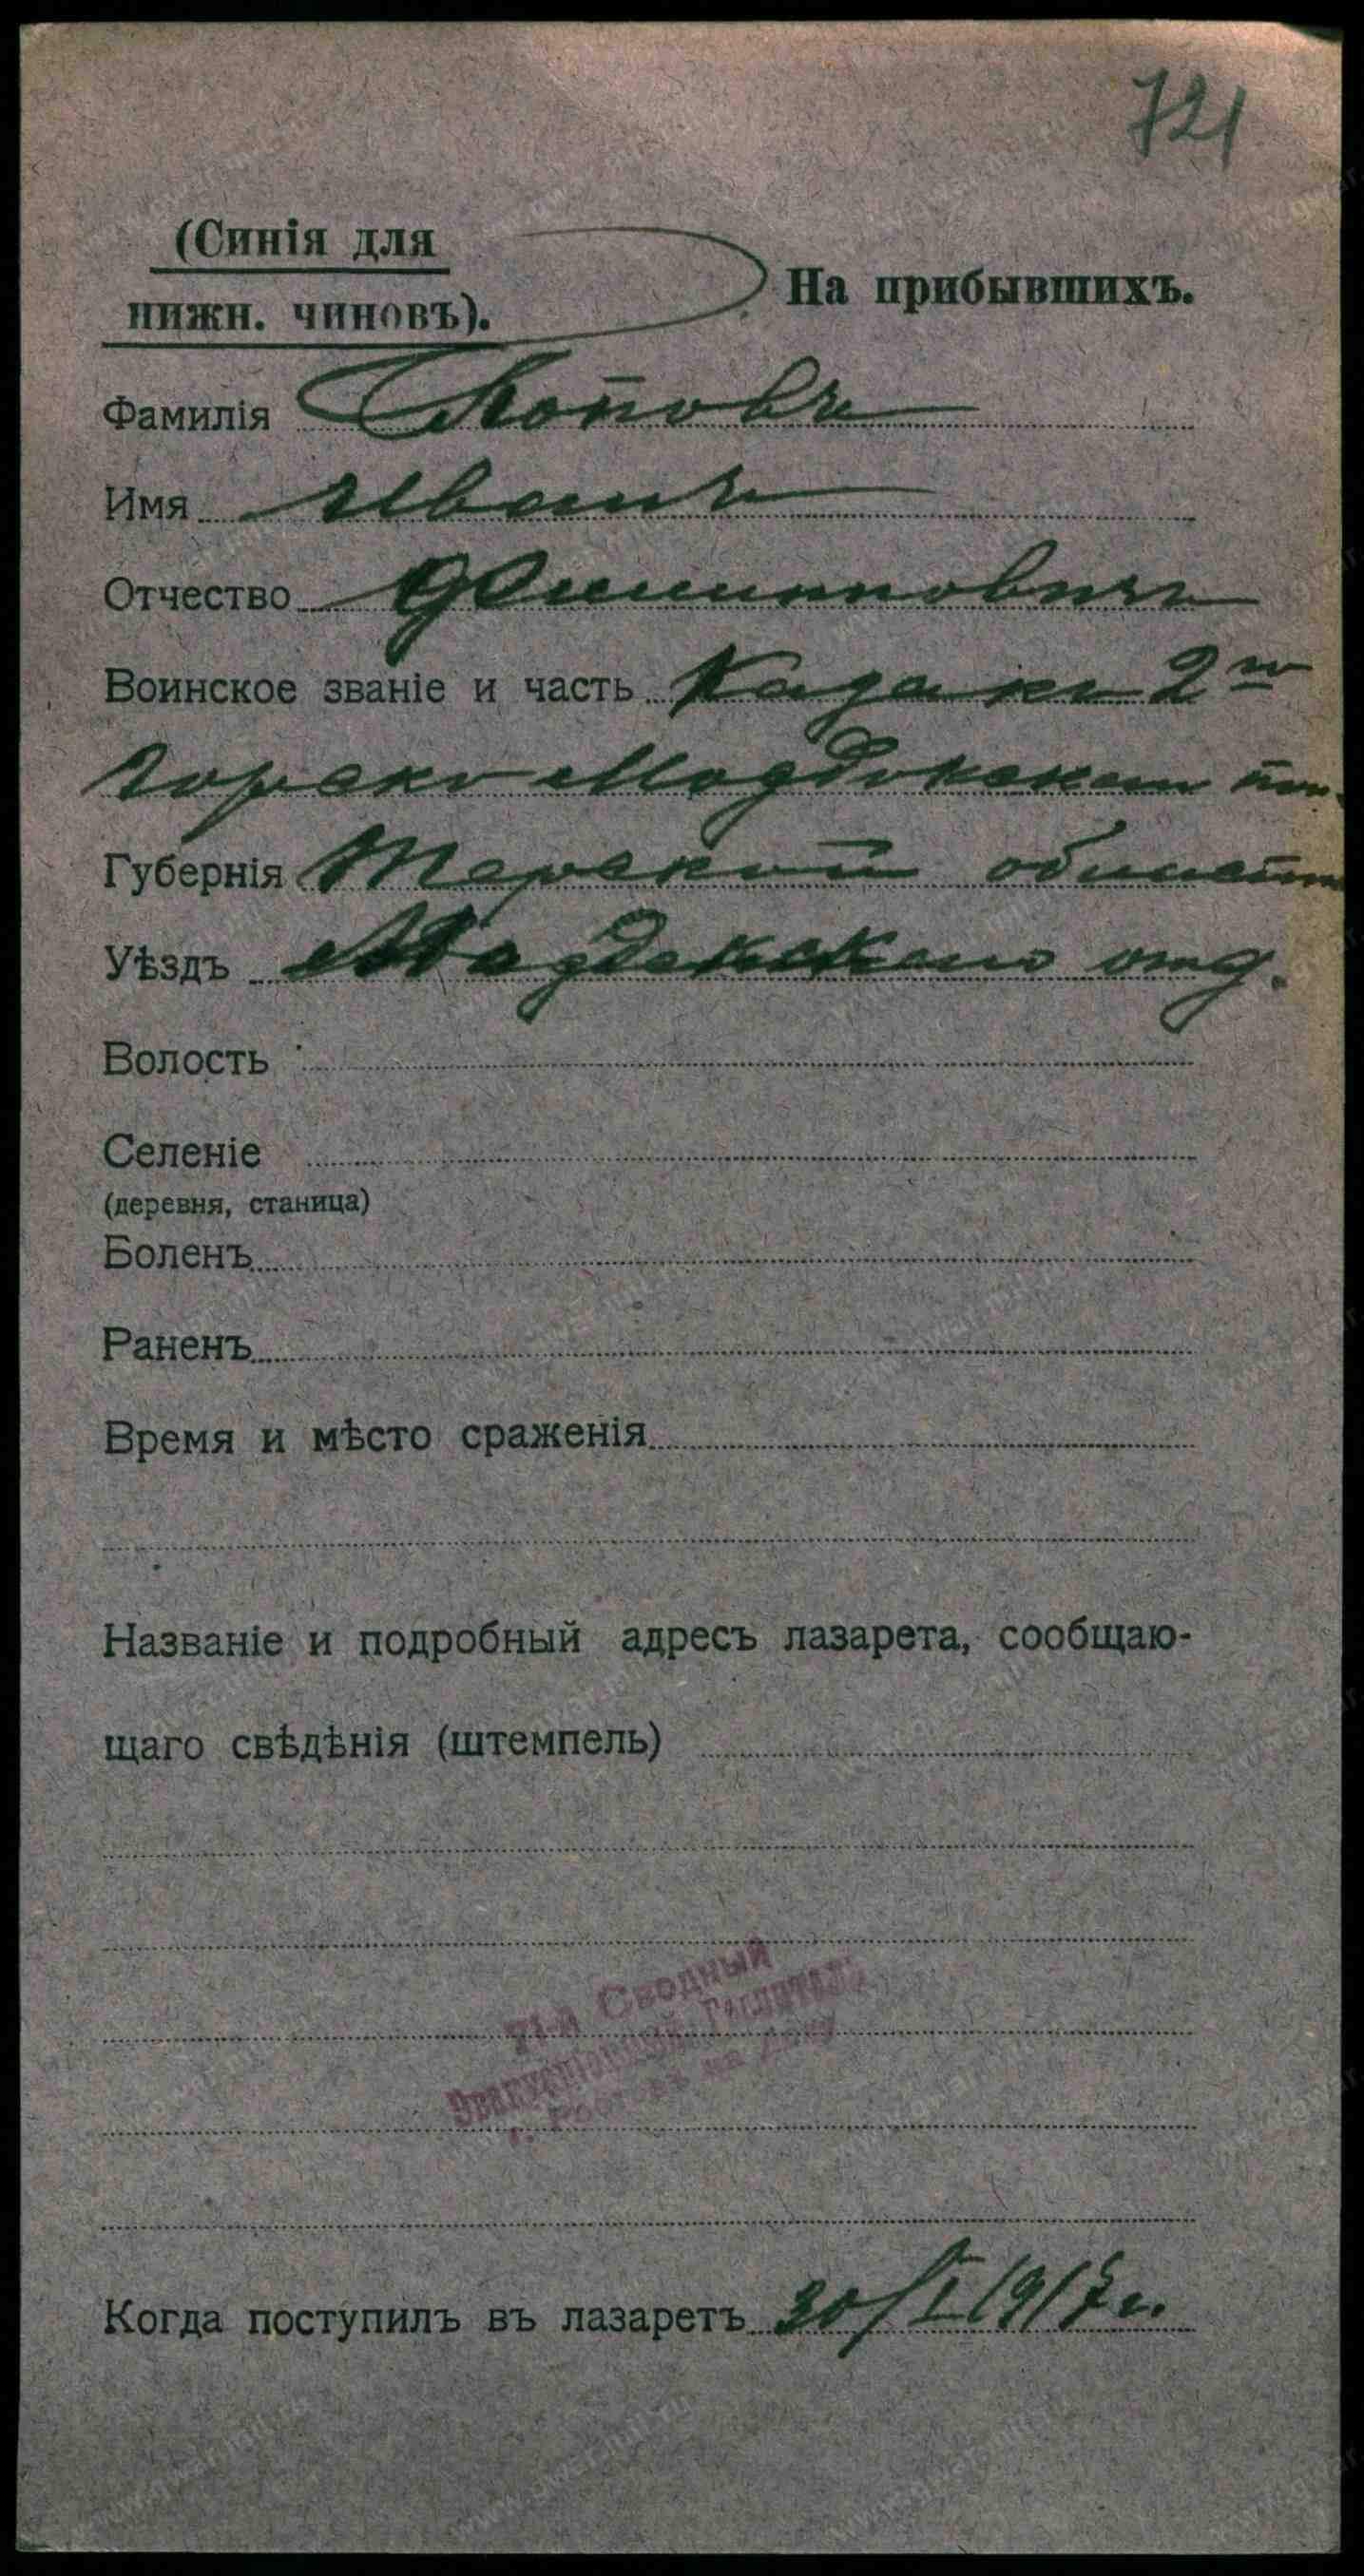 721
(Синія для
нижн. чиновъ).
На прибывшихъ.
Фамилія Поповъ
Имя Иванъ
Отчество Филипповичъ
Воинское званіе и часть Казакъ 2го
Горско Моздокскаго пол.
Губернія Терской области
Уѣздъ Моздокскаго отд.
Волость
Селеніе
(деревня, станица)
Боленъ
Раненъ
Время и мѣсто сраженія
Названіе и подробный адресъ лазарета, сообщаю-
щаго свѣдѣнія (штемпель)
71-й Сводный
Эвакуаціонный Госпиталь
г. Ростовъ на Дону
Когда поступилъ въ лазаретъ 30/I 1917 г.